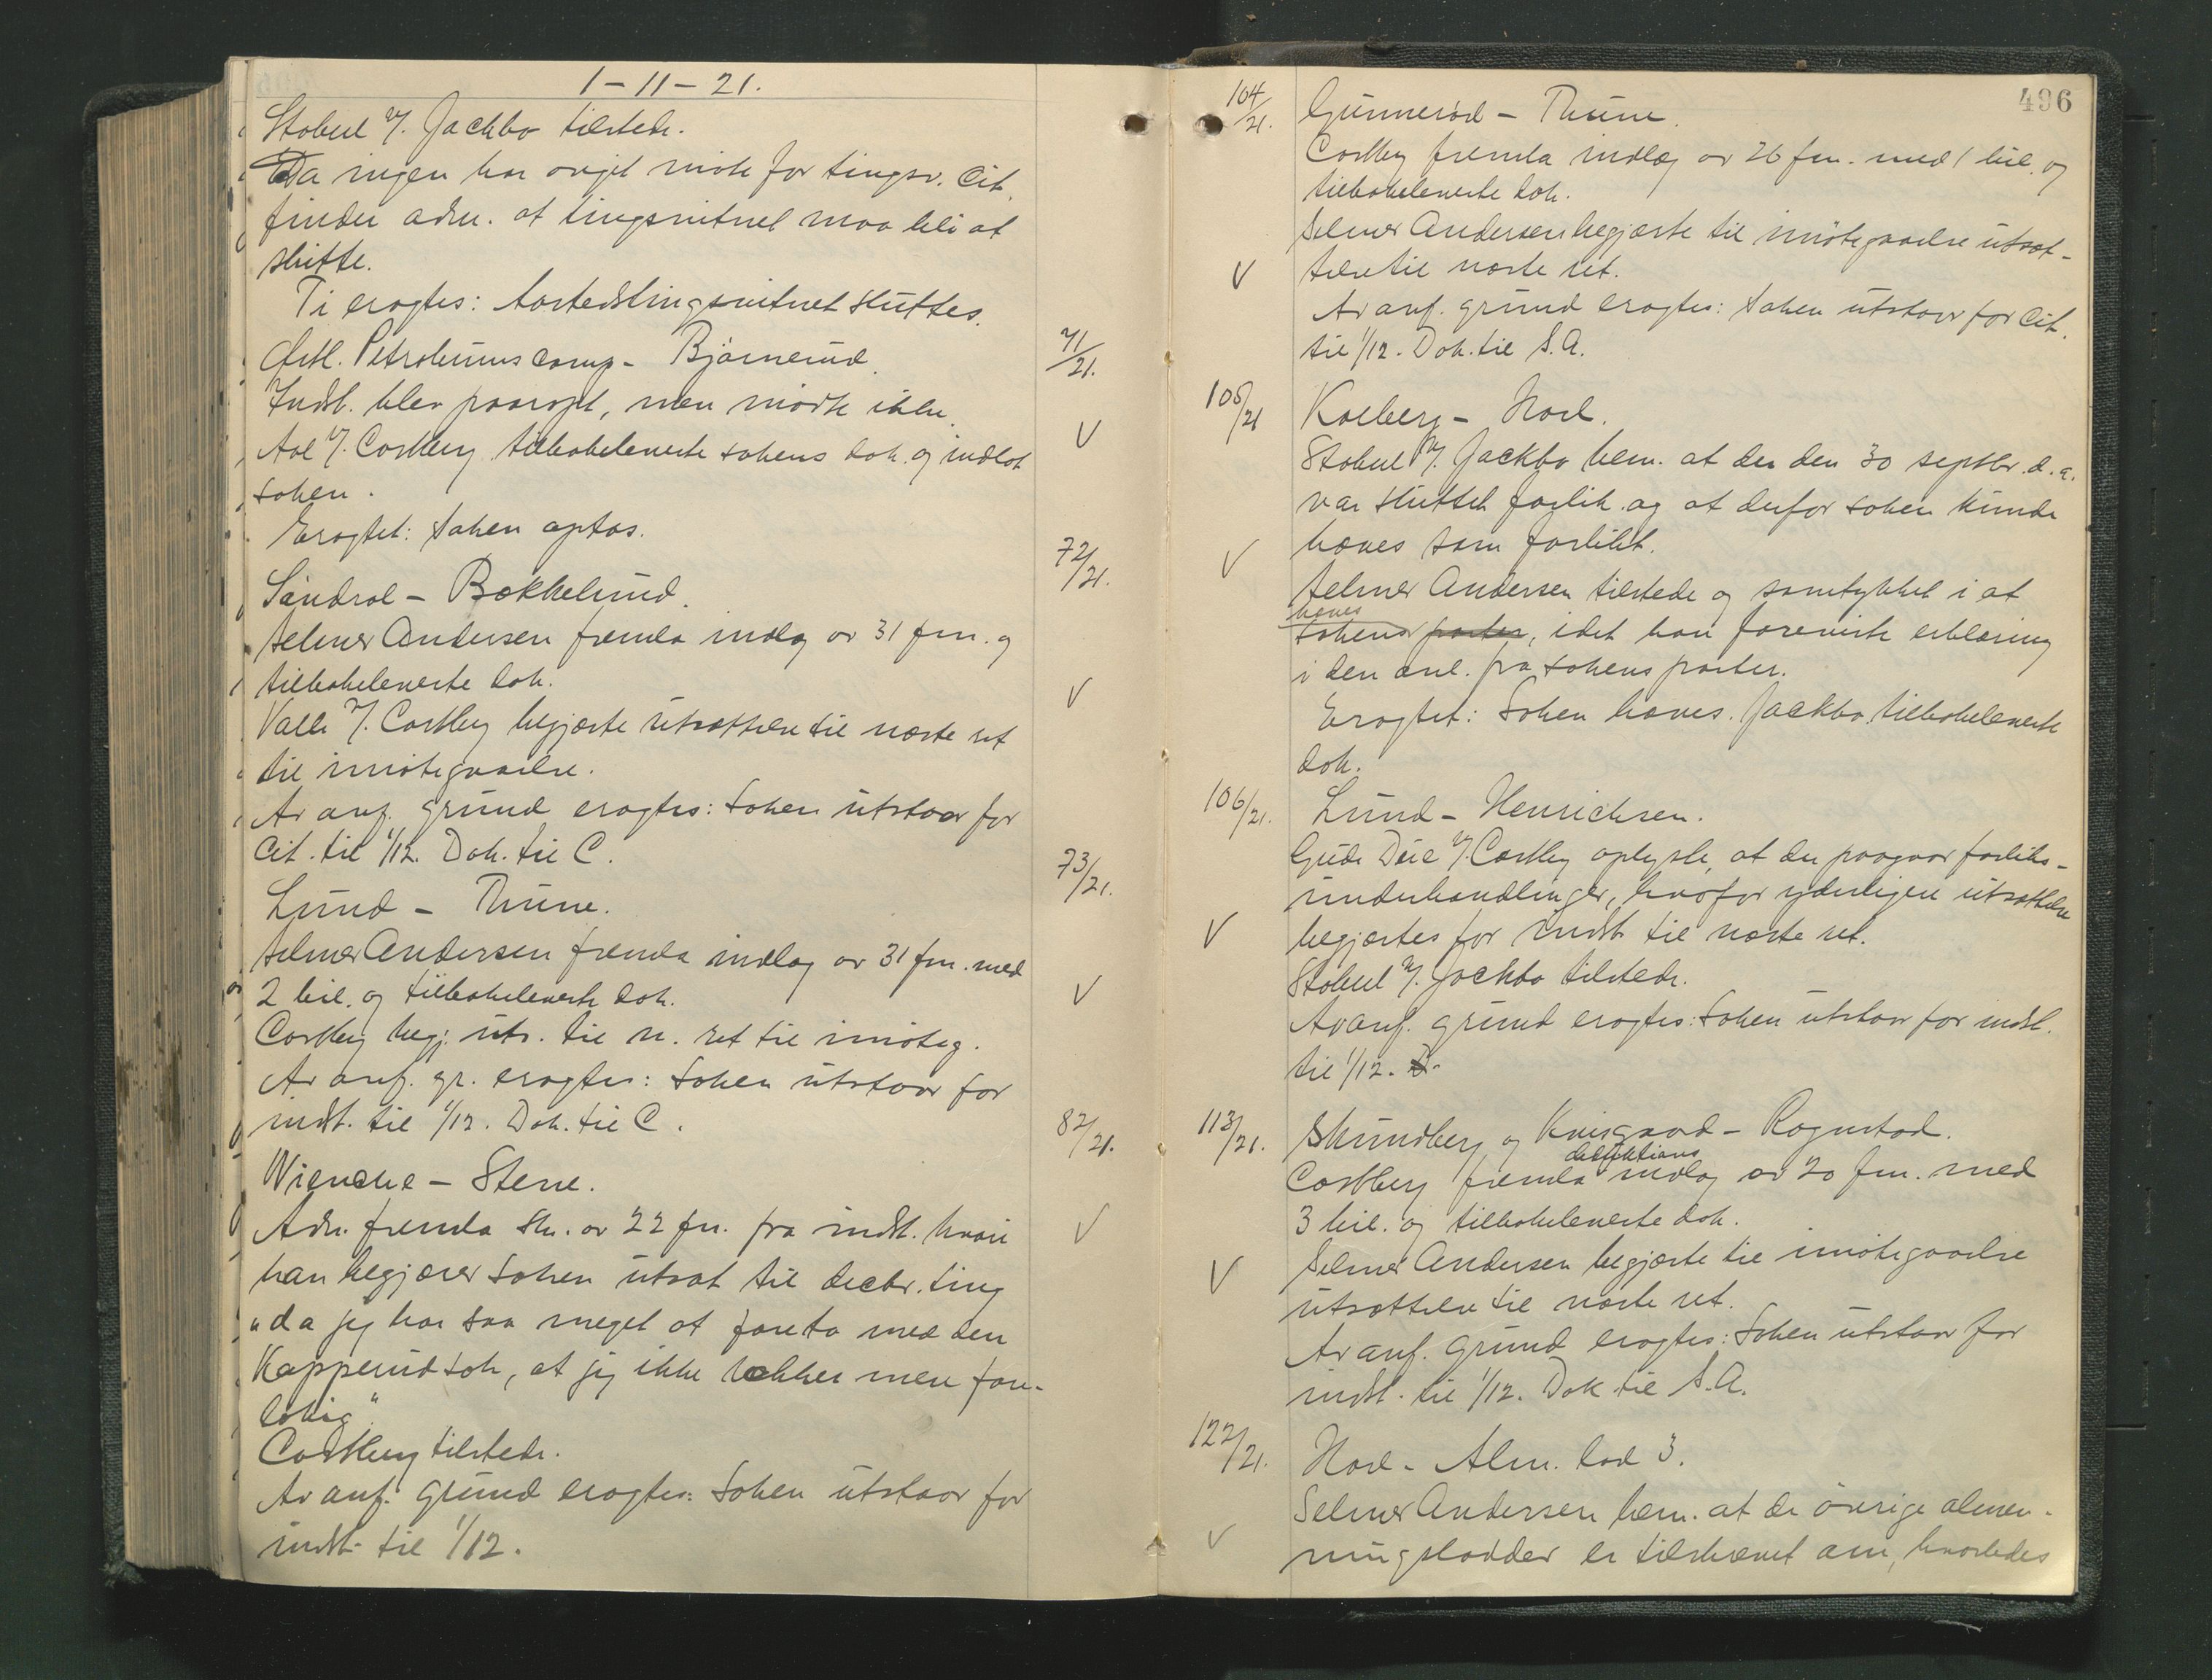 1-11-21.
Stabel v/. Jackbo tilstede.
Da ingen har avgit møte for tingsv. Cit.
finder adm. at tingsvitnet maa bli at
slutte.
Ti eragtes: Aastedstingsvitnet sluttes.
Østl. Petroleumscomp - Bjørnerud.
71/21.
Indst. blev paaropt, men møtte ikke.
Aal v/. Castberg tilbakeleverte sakens dok. og indlot
V
saken.
Eragtet: Saken optas.
Sandral - Bakkelund.
72/21.
Selmer Andersen fremla indlæg av 31 f.m. og
tilbakeleverte dok.
V
Valle v/. Castberg begjærte utsættelse til næste ret
til imøtegaaelse.
Av anf. grund eragtes: Saken utstaar for
Cit. til 1/12. Dok. til C.
Lund - Thune.
73/21.
Selmer Andersen fremla indlæg av 31 f.m. med
2 bil. og tilbakeleverte dok.
V
Castberg begj. uts. til n. ret til imøteg.
Av anf. gr. eragtes: Saken utstaar for
indst. til 1/12. Dok. til C.
82/21.
Wiencke - Stene.
Adm. fremla skr. av 22 f.m. fra indst. hvori
V
han begjærer saken utsat til decbr. ting
"da jeg har saa meget at foreta med den
Kapperudsak, at jeg ikke rækker mere fore-
løbig"
Castberg tilstede.
Av anf. grund eragtes: Saken utstaar for
indst. til 1/12.
496
104/21.
Gunnerød - Thune.
Castberg fremla indlæg av 26 f.m. med 1 bil. og
tilbakeleverte dok.
Selmer Andersen begjærte til imøtegaaelse utsæt-
telse til næste ret.
V
Av anf. grund eragtes: Saken utstaar for Cit.
til 1/12. Dok. til S.A.
105/21
Kolberg - Hoel.
Stabel v/. Jackbo bem. at der den 30 septbr. d.a.
var sluttet forlik og at derfor saken kunde
hæves som forlikt.
V
Selmer Andersen tilstede og samtykket i at
hæves
sakens parter, idet han foreviste erklæring
i den anl. fra sakens parter.
Eragtet: Saken hæves. Jackbo tilbakeleverte
dok.
106/21.
Lund - Henrichsen.
Gude Due v/. Castberg oplyste, at der paagaar forliks-
underhandlinger, hvorfor yderligere utsættelse
begjærtes for indst. til næste ret.
V
Stabel v/. Jackbo tilstede.
Av anf. grund eragtes: Saken utstaar for indst.
til 1/12. D.
113/21.
Skundberg og Knisgaard - Rognstad.
deduktions
Castberg fremla indlæg av 20 f.m. med
3 bil. og tilbakeleverte dok.
Selmer Andersen begjærte til imøtegaaelse
V
utsættelse til næste ret.
Av anf. grund eragtes: Saken utstaar for
indst. til 1/12. Dok til S.A.
122/21.
Hoel - Alm. lod 3.
Selmer Andersen bem. at de øvrige almen-
V
ningslodder er tilskrevet om, hvorledes